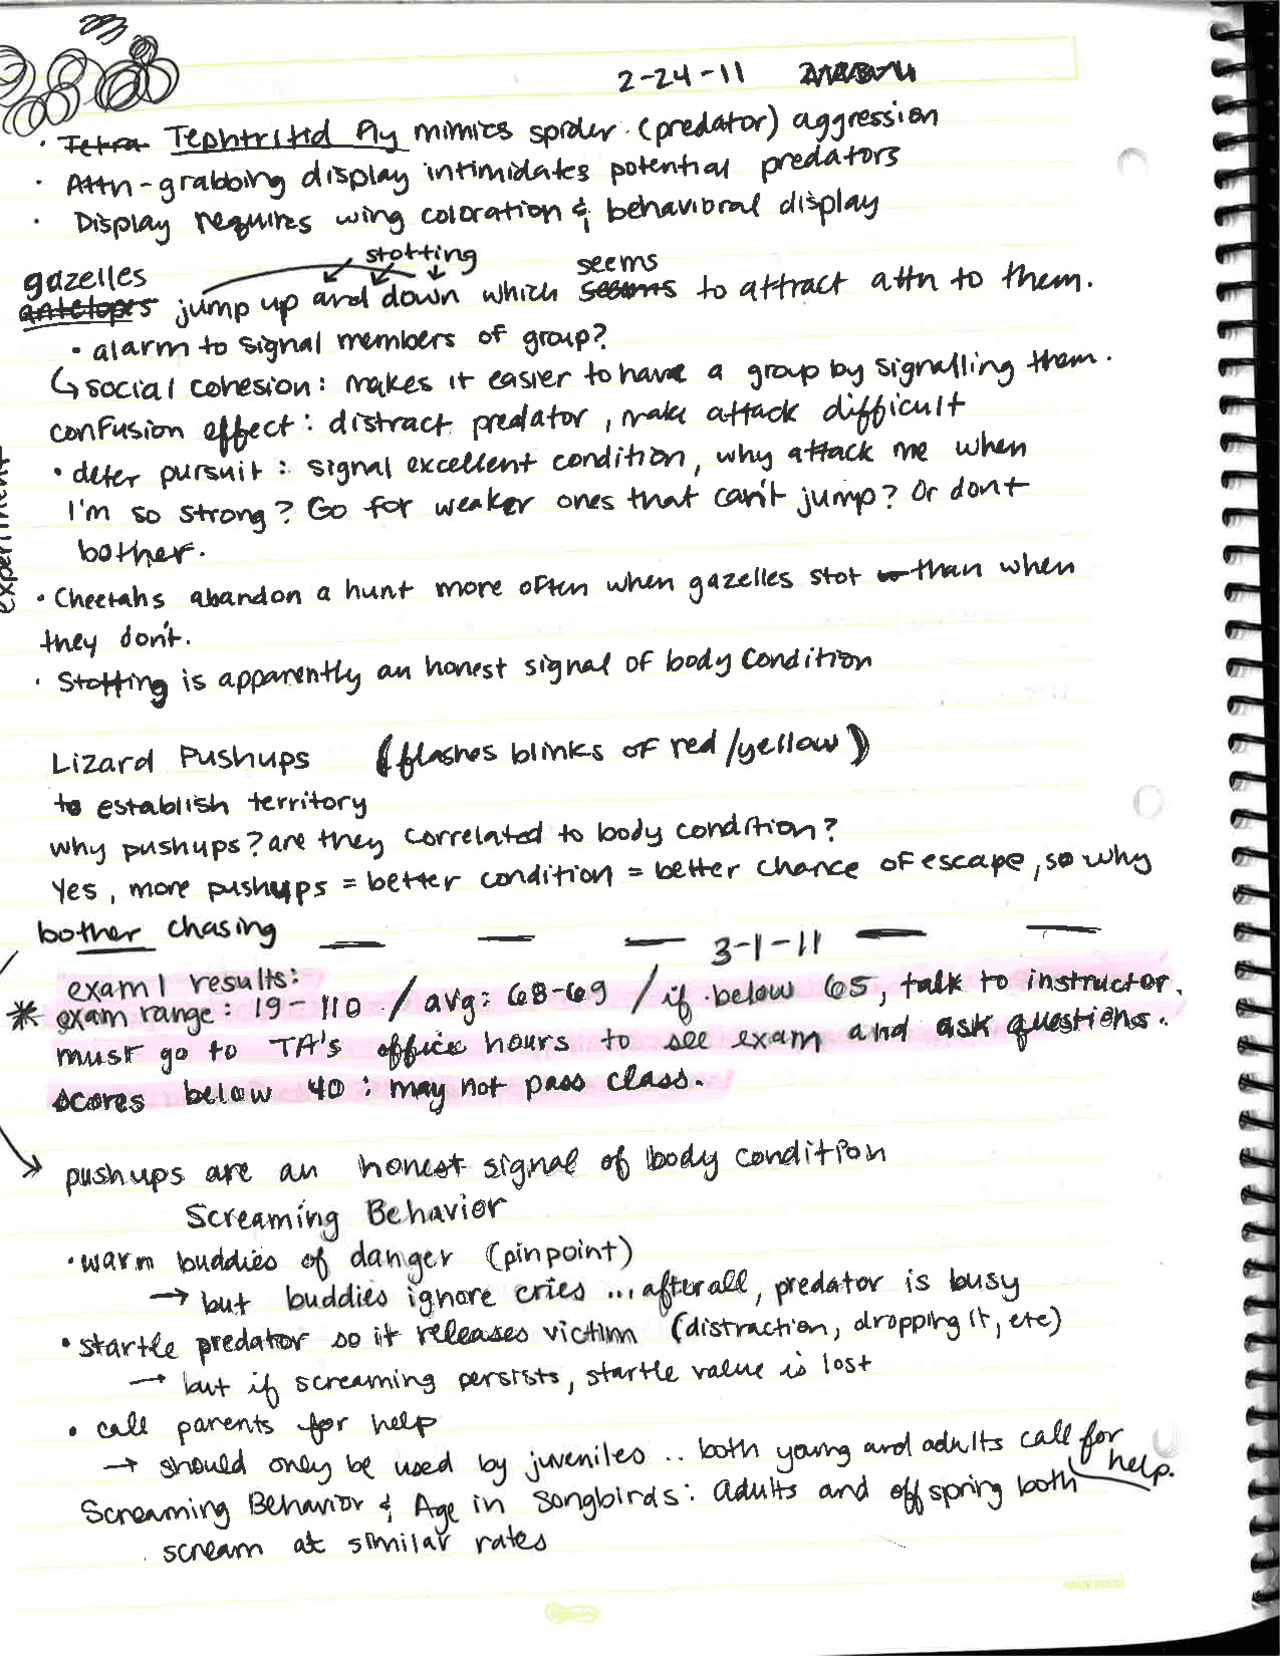 2-24-11
· Tetra Tephtritid fly mimics spider (predator) aggression
· Attn-grabbing display intimidates potential predators
· Display requires wing coloration & behavioral display
stotting
gazelles seems
antelopes jump up and down which seems to attract attn to them.
• alarm to signal members of group?
↳ social cohesion: makes it easier to have a group by signalling them.
confusion effect: distract predator, make attack difficult
• deter pursuit: signal excellent condition, why attack me when
I'm so strong? Go for weaker ones that can't jump? Or don't
bother.
experiment
• Cheetahs abandon a hunt more often when gazelles stot than when
they don't.
· Stotting is apparently an honest signal of body condition
Lizard Pushups (flashes blinks of red/yellow)
to establish territory
why pushups? are they correlated to body condition?
Yes, more pushups = better condition = better chance of escape, so why
bother chasing
3-1-11
exam 1 results:
* exam range: 19-110 / avg: 68-69 / if below 65, talk to instructor.
must go to TA's office hours to see exam and ask questions.
scores below 40: may not pass class.
→ pushups are an honest signal of body condition
Screaming Behavior
• warn buddies of danger (pinpoint)
→ but buddies ignore cries ... afterall, predator is busy
• startle predator so it releases victim (distraction, dropping it, etc)
→ but if screaming persists, startle value is lost
• call parents for help
→ should only be used by juveniles .. both young and adults call for
help.
Screaming Behavior & Age in Songbirds: Adults and offspring both
scream at similar rates